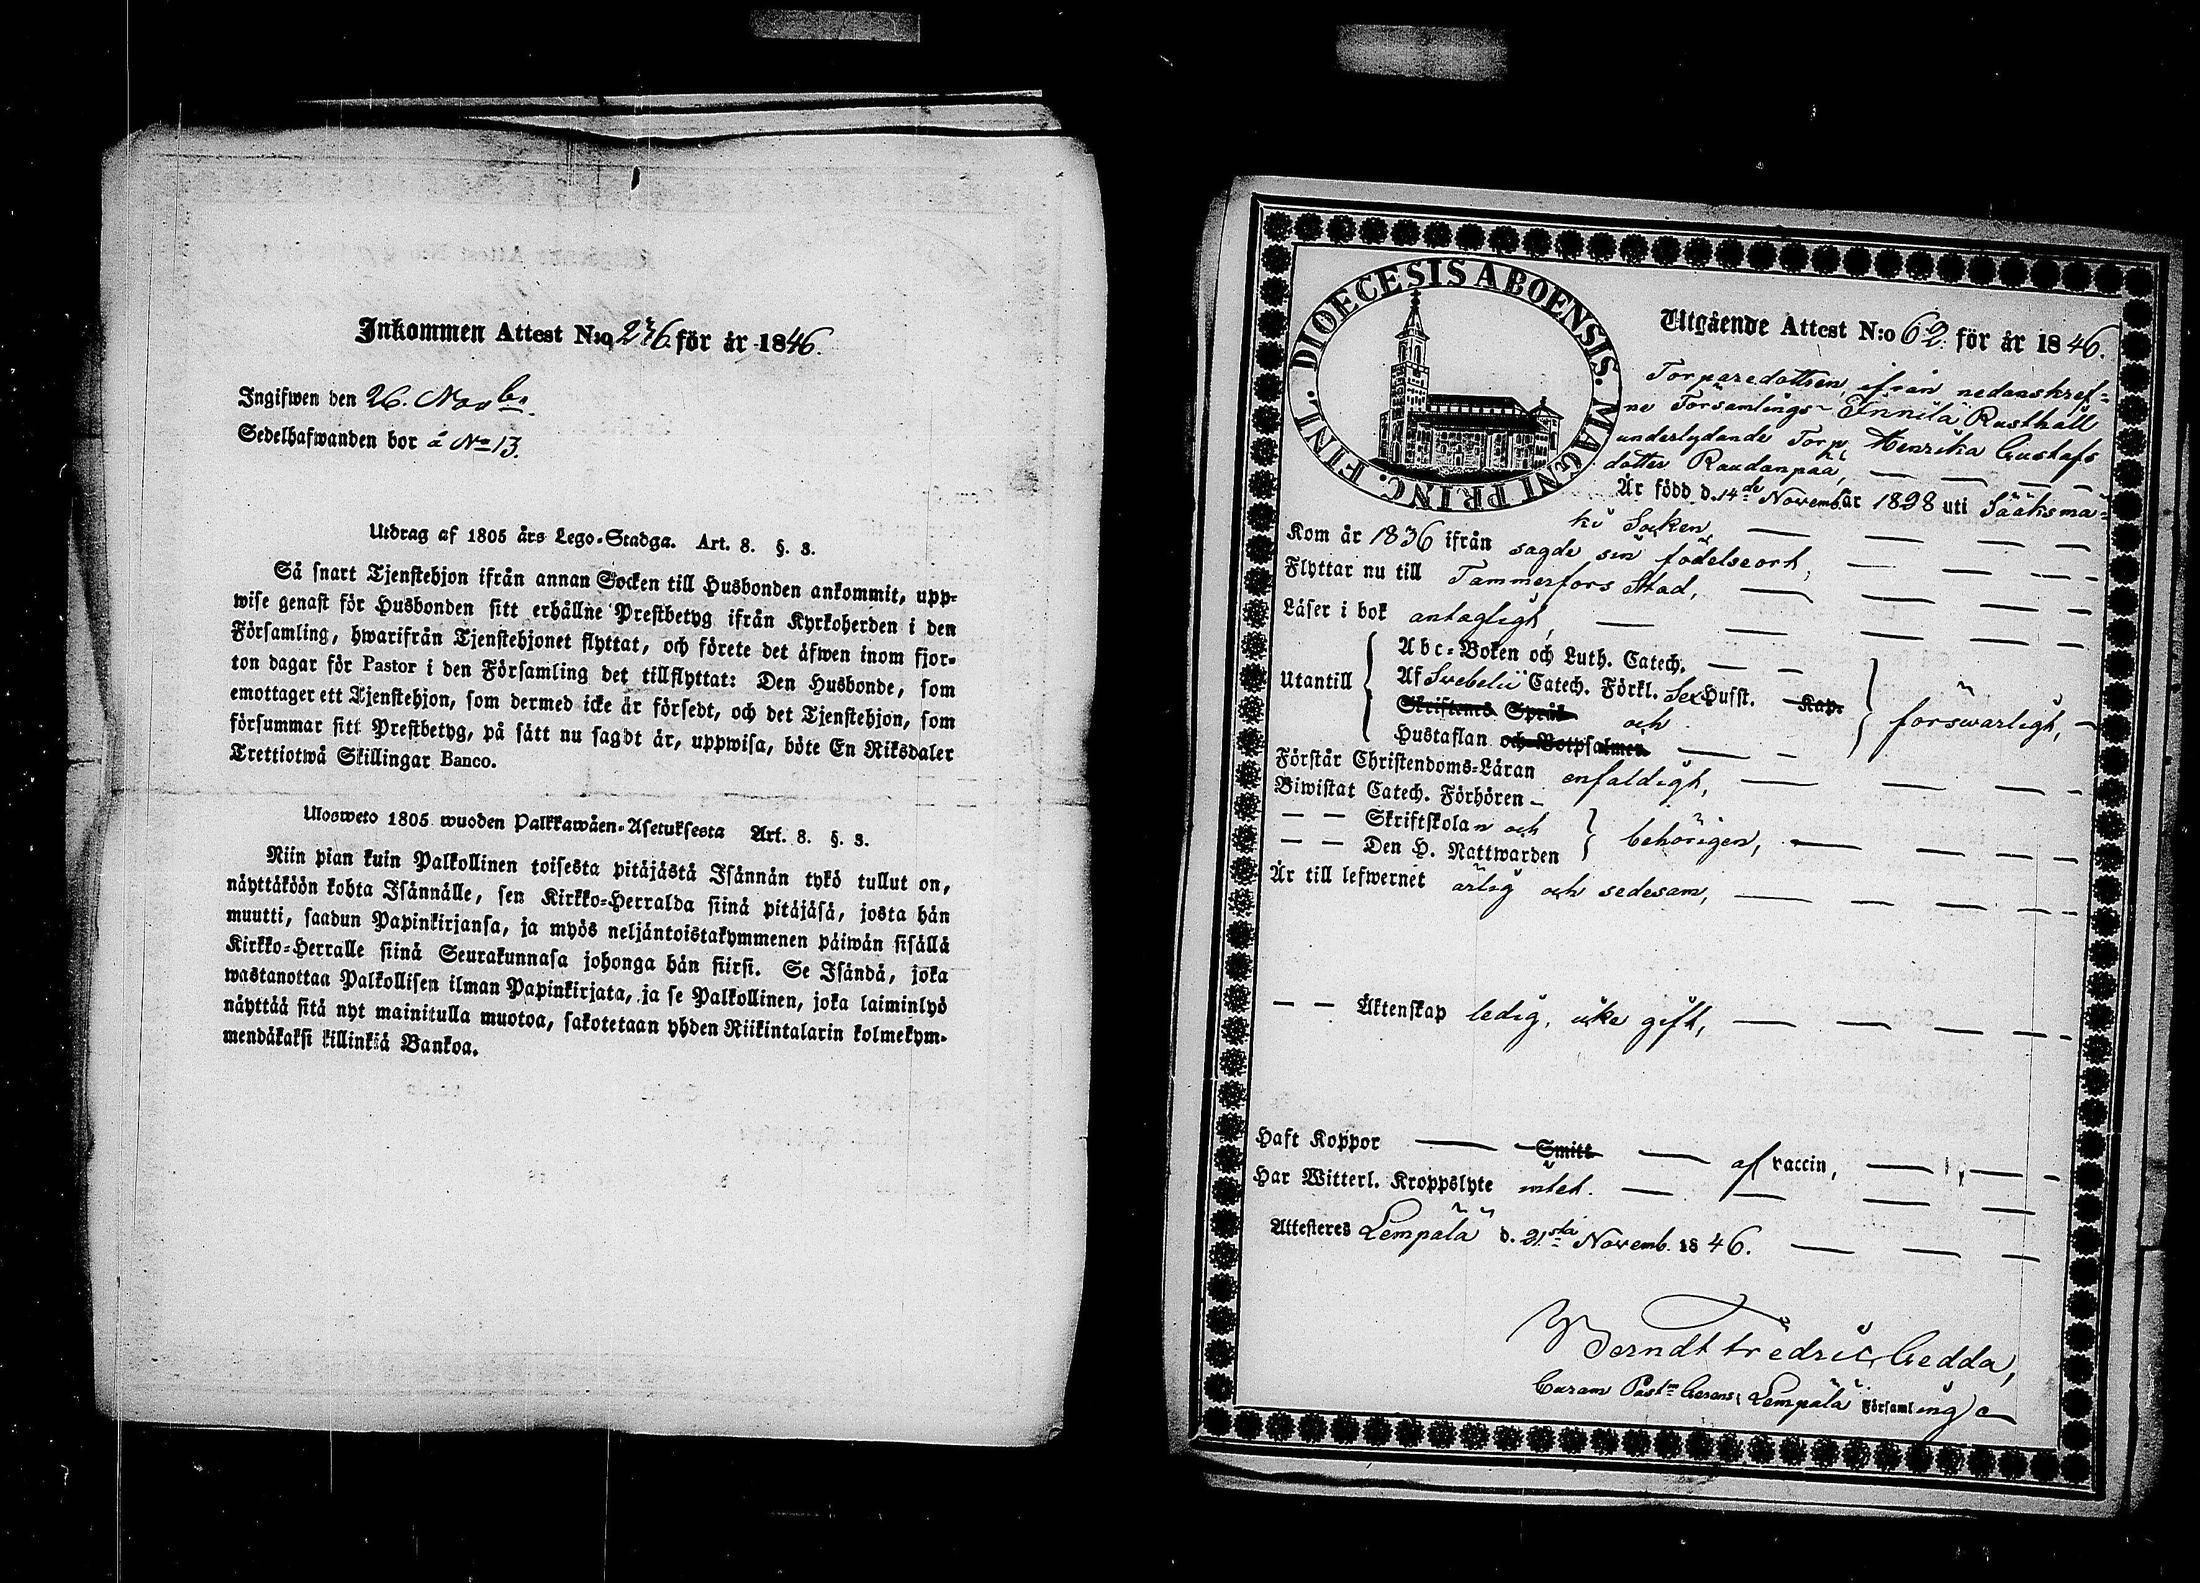 Inkommen Attest N:o 276. för år 1846.
Ingifwen den 26. Novbr.
Sedelhafwanden bor å No 13.
Utdrag af 1805 års Lego-Stadga. Art. 8. §. 3.
Så snart Tjenstehjon ifrån annan Socken till Husbonden ankommit, upp-
wise genast för Husbonden sitt erhållne Prestbetyg ifrån Kyrkoherden i den
Församling, hwarifrån Tjenstehjonet flyttat, och förete det äfwen inom fjor-
ton dagar för Pastor i den Församling det tillflyttat: Den Husbonde, som
emottager ett Tjenstehjon, som dermed icke är försedt, och det Tjenstehjon, som
försummar sitt Prestbetyg, på sätt nu sagdt är, uppwisa, böte En Riksdaler
Trettiotwå Skillingar Banco.
Ulosweto 1805 wuoden Palkkawäen-Asetuksesta Art. 8. §. 3.
Niin pian kuin Palkollinen toisesta pitäjästä Isännän tykö tullut on,
näyttäköön kohta Isännälle, sen Kirkko-Herralda siinä pitäjäsä, josta hän
muutti, saadun Papinkirjansa, ja myös neljäntoistakymmenen päiwän sisällä
Kirkko-Herralle siinä Seurakunnasa johonga hän siirsi. Se Isändä, joka
wastanottaa Palkollisen ilman Papinkirjata, ja se Palkollinen, joka laiminlyö
näyttää sitä nyt mainitulla muotoa, sakotetaan yhden Riikintalarin kolmekym-
mendäkaksi killinkiä Bankoa.
DIOECESIS ABOENSIS. MAGNI PRINC. FINL.
Utgående Attest N:o 62. för år 1846.
Torparedottren, ifrån nedanskref-
ne Församlings Innilä Rusthåll
underlydande Torp, Henrika Gustafs
dotter Raudanpää,
Är född d. 14de Novemb. år 1828 uti Sääksmä-
ki Socken,
Kom år 1836 ifrån sagde sin födelseort,
Flyttar nu till Tammerfors Stad,
Läser i bok antagligt,
Utantill
Abc-Boken och Luth. Catech.
Af Svebelii Catech. Förkl. Sex Hufst. Kap.
Skriftens Språk och
Hustaflan och Botpsalmer
försvarligt,
Förstår Christendoms-Läran enfaldigt,
Biwistat Catech. Förhören
— — Skriftskolan och
— — Den H. Nattwarden
behörigen,
Är till lefwernet ärlig och sedesam,
— — Äktenskap ledig, icke gift,
Haft Koppor — Smitt — af vaccin,
Har Witterl. Kroppslyte intet.
Attesteres Lempälä d. 21sta Novemb. 1846.
Berndt Fredric Gedda,
Curam Past:m Gerens i Lempälä Församling